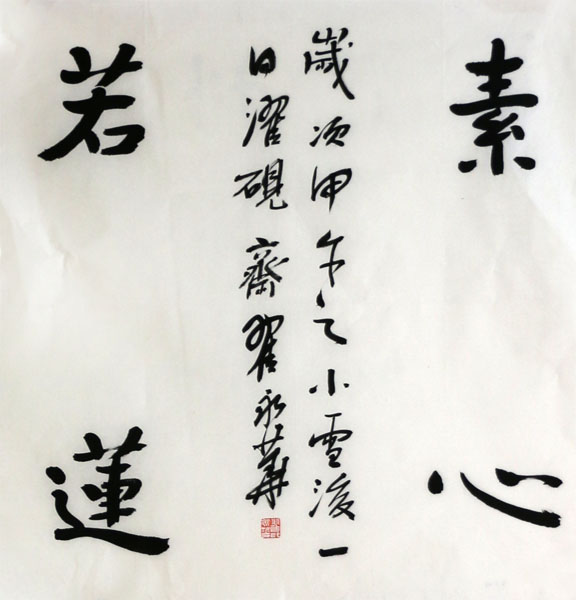 素心
歲次甲午之小雪後一
日濯硯齋翟永華
若蓮